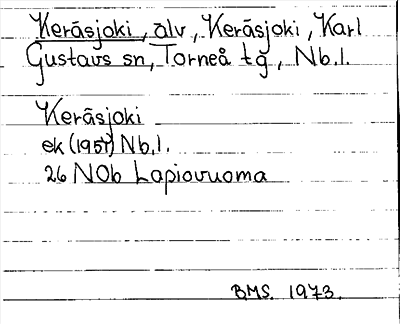 Keräsjoki, älv, Keräsjoki, Karl
Gustavs sn, Torneå tg, Nb.l.
Keräsjoki
ek (1957) Nb.l.
26 NOb Lapiovuoma
BMS. 1973.